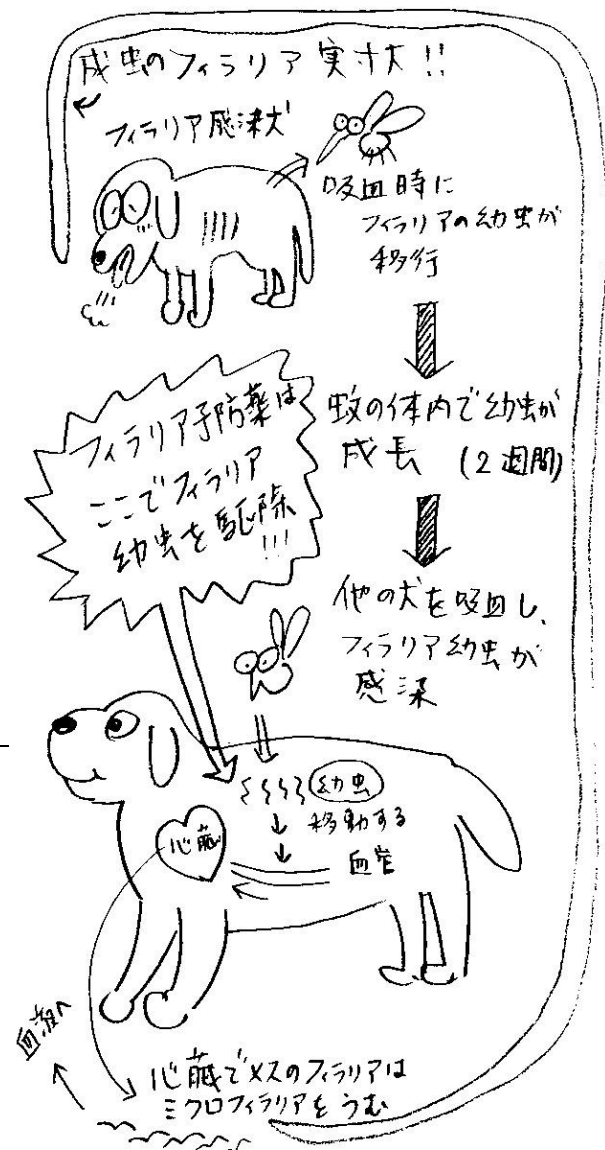 成虫のフィラリア実寸大!!
フィラリア感染犬
吸血時に
フィラリアの幼虫が
移行
蚊の体内で幼虫が
成長 (2週間)
フィラリア予防薬は
ここでフィラリア
幼虫を駆除
!!!
他の犬を吸血し、
フィラリア幼虫が
感染
幼虫
移動する
血管
心臓
血液へ
心臓でメスのフィラリアは
ミクロフィラリアをうむ